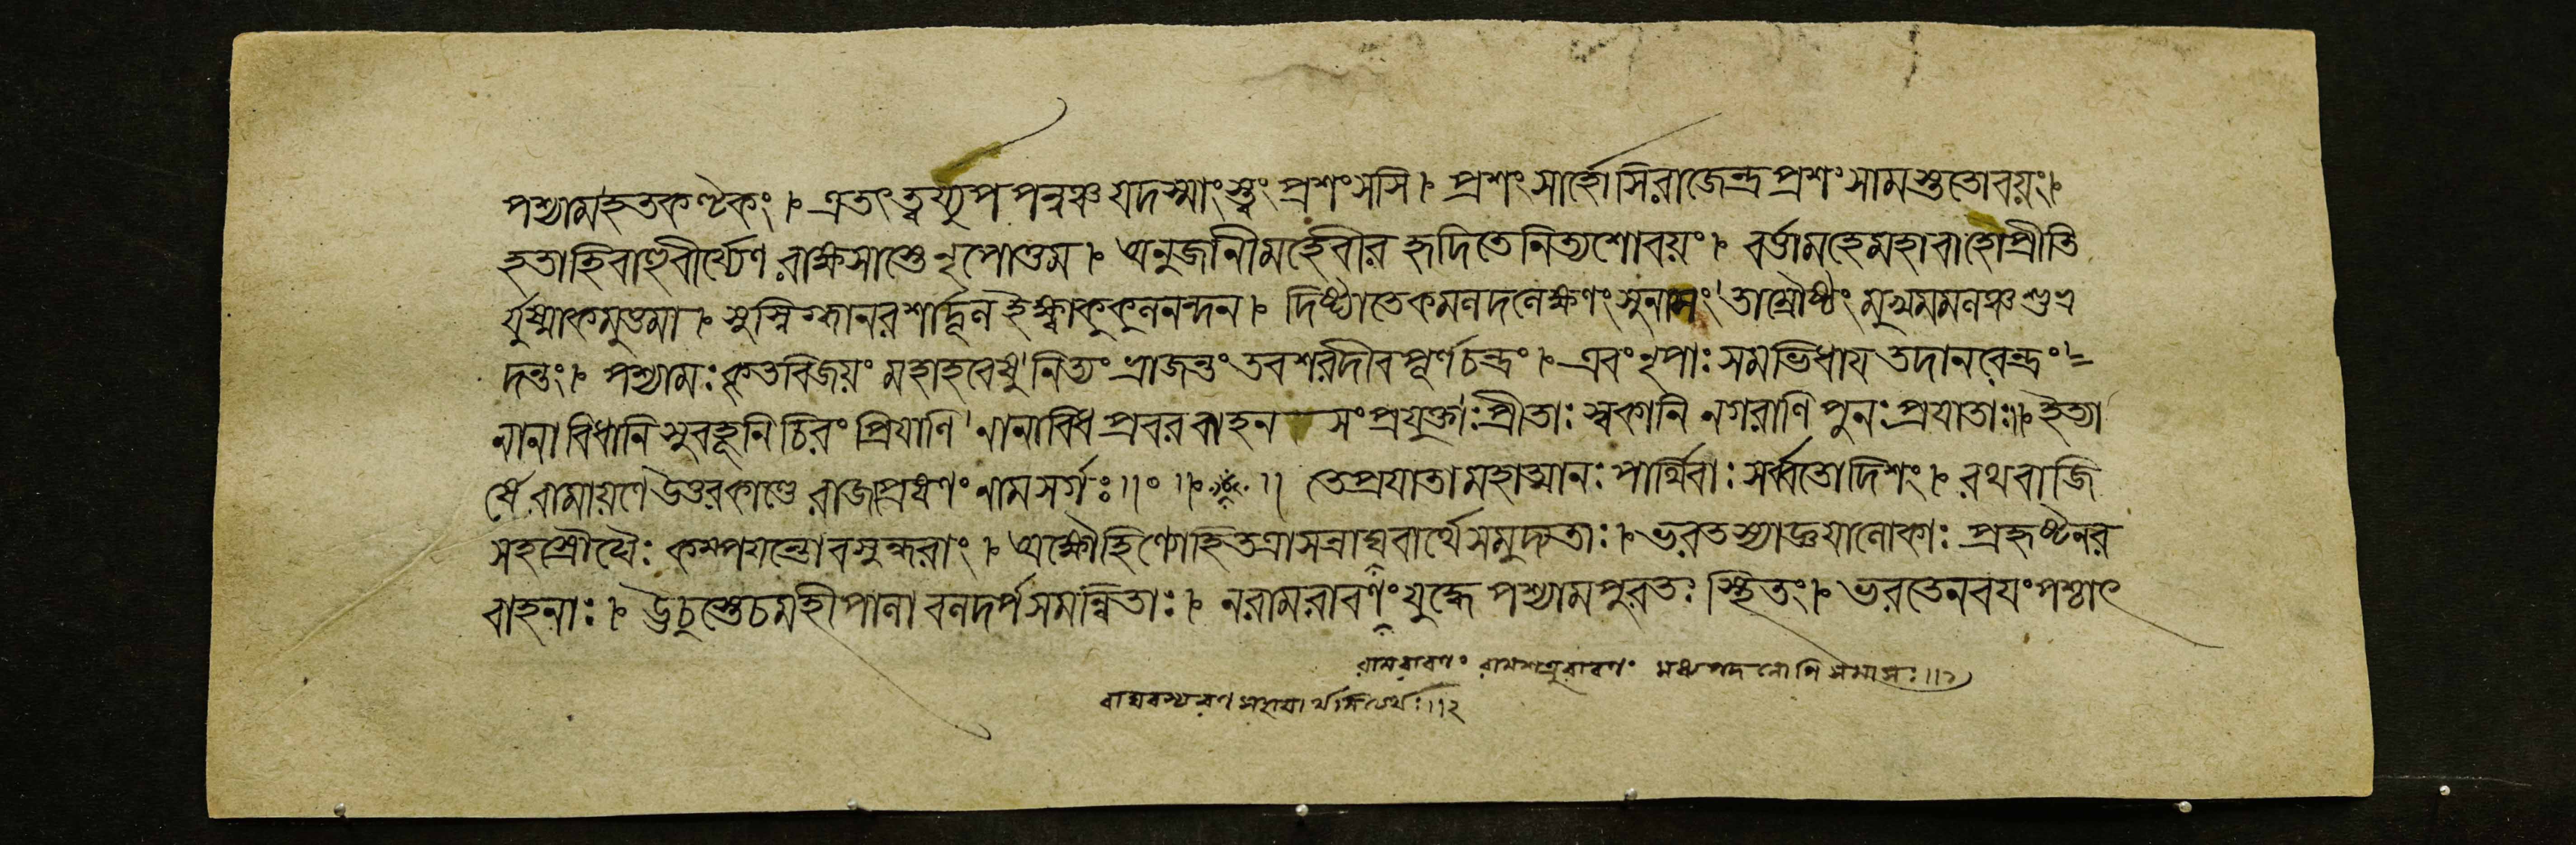 পশ্যামহতকণ্টকং। এতৎ ত্বয্যুপপন্নঞ্চ যদস্মাংস্ত্বং প্রশংসসি। প্রশংসার্হোসি রাজেন্দ্র প্রশংসামস্তুতোবয়ং।
হতাহিবাহুবীর্য্যেণ রাক্ষসাস্তে নৃপোত্তম। অনুজানীমহেবীর হৃদিতে নিত্যশোবয়ং। বর্ত্তামহেমহাবাহো প্রীতি
র্যুষ্মাকমুত্তমা। সুস্নিগ্ধা নরশার্দ্দূল ইক্ষ্বাকুকুলনন্দন। দিষ্ট্যাতেকমলদলেক্ষণং সুনাসং তাম্রৌষ্ঠং মুখমমলঞ্চ শুভ্র
দন্তং। পশ্যামঃ কৃতবিজয়ং মহাহবেষু নিত্যং ভ্রাজন্তং তবশরদীব পূর্ণচন্দ্রং। এবং নৃপাঃ সমভিধায তদা নরেন্দ্রং
নানাবিধানি সুবহূনি চিরং প্রিযাণি নানাবিধ প্রবর বাহন সংপ্রযুক্তাঃ প্রীতাঃ স্বকানি নগরাণি পুনঃ প্রযাতাঃ॥ ইত্যা
র্ষে রামায়ণে উত্তরকাণ্ডে রাজাপ্রেষণং নাম সর্গঃ॥ ॥ তেপ্রযাতা মহাত্মানঃ পার্থিবাঃ সর্ব্বতোদিশং। রথবাজি
সহস্রৌঘৈঃ কম্পযন্তোবসুন্ধরাং। অক্ষৌহিণ্যোহিতত্রাসন্রাঘবার্থে সমুদ্যতাঃ। ভরতস্যাজ্ঞযানেকাঃ প্রহৃষ্টনর
বাহনাঃ। ঊচুস্তেচমহীপালা বলদর্পসমন্বিতাঃ। নরামরাবণং যুদ্ধে পশ্যামপুরতঃ স্থিতং। ভরতেনবযং পশ্চাৎ
রামরাবণং রামশত্রুরাবণং মধ্যপদলোপি সমাসঃ॥১